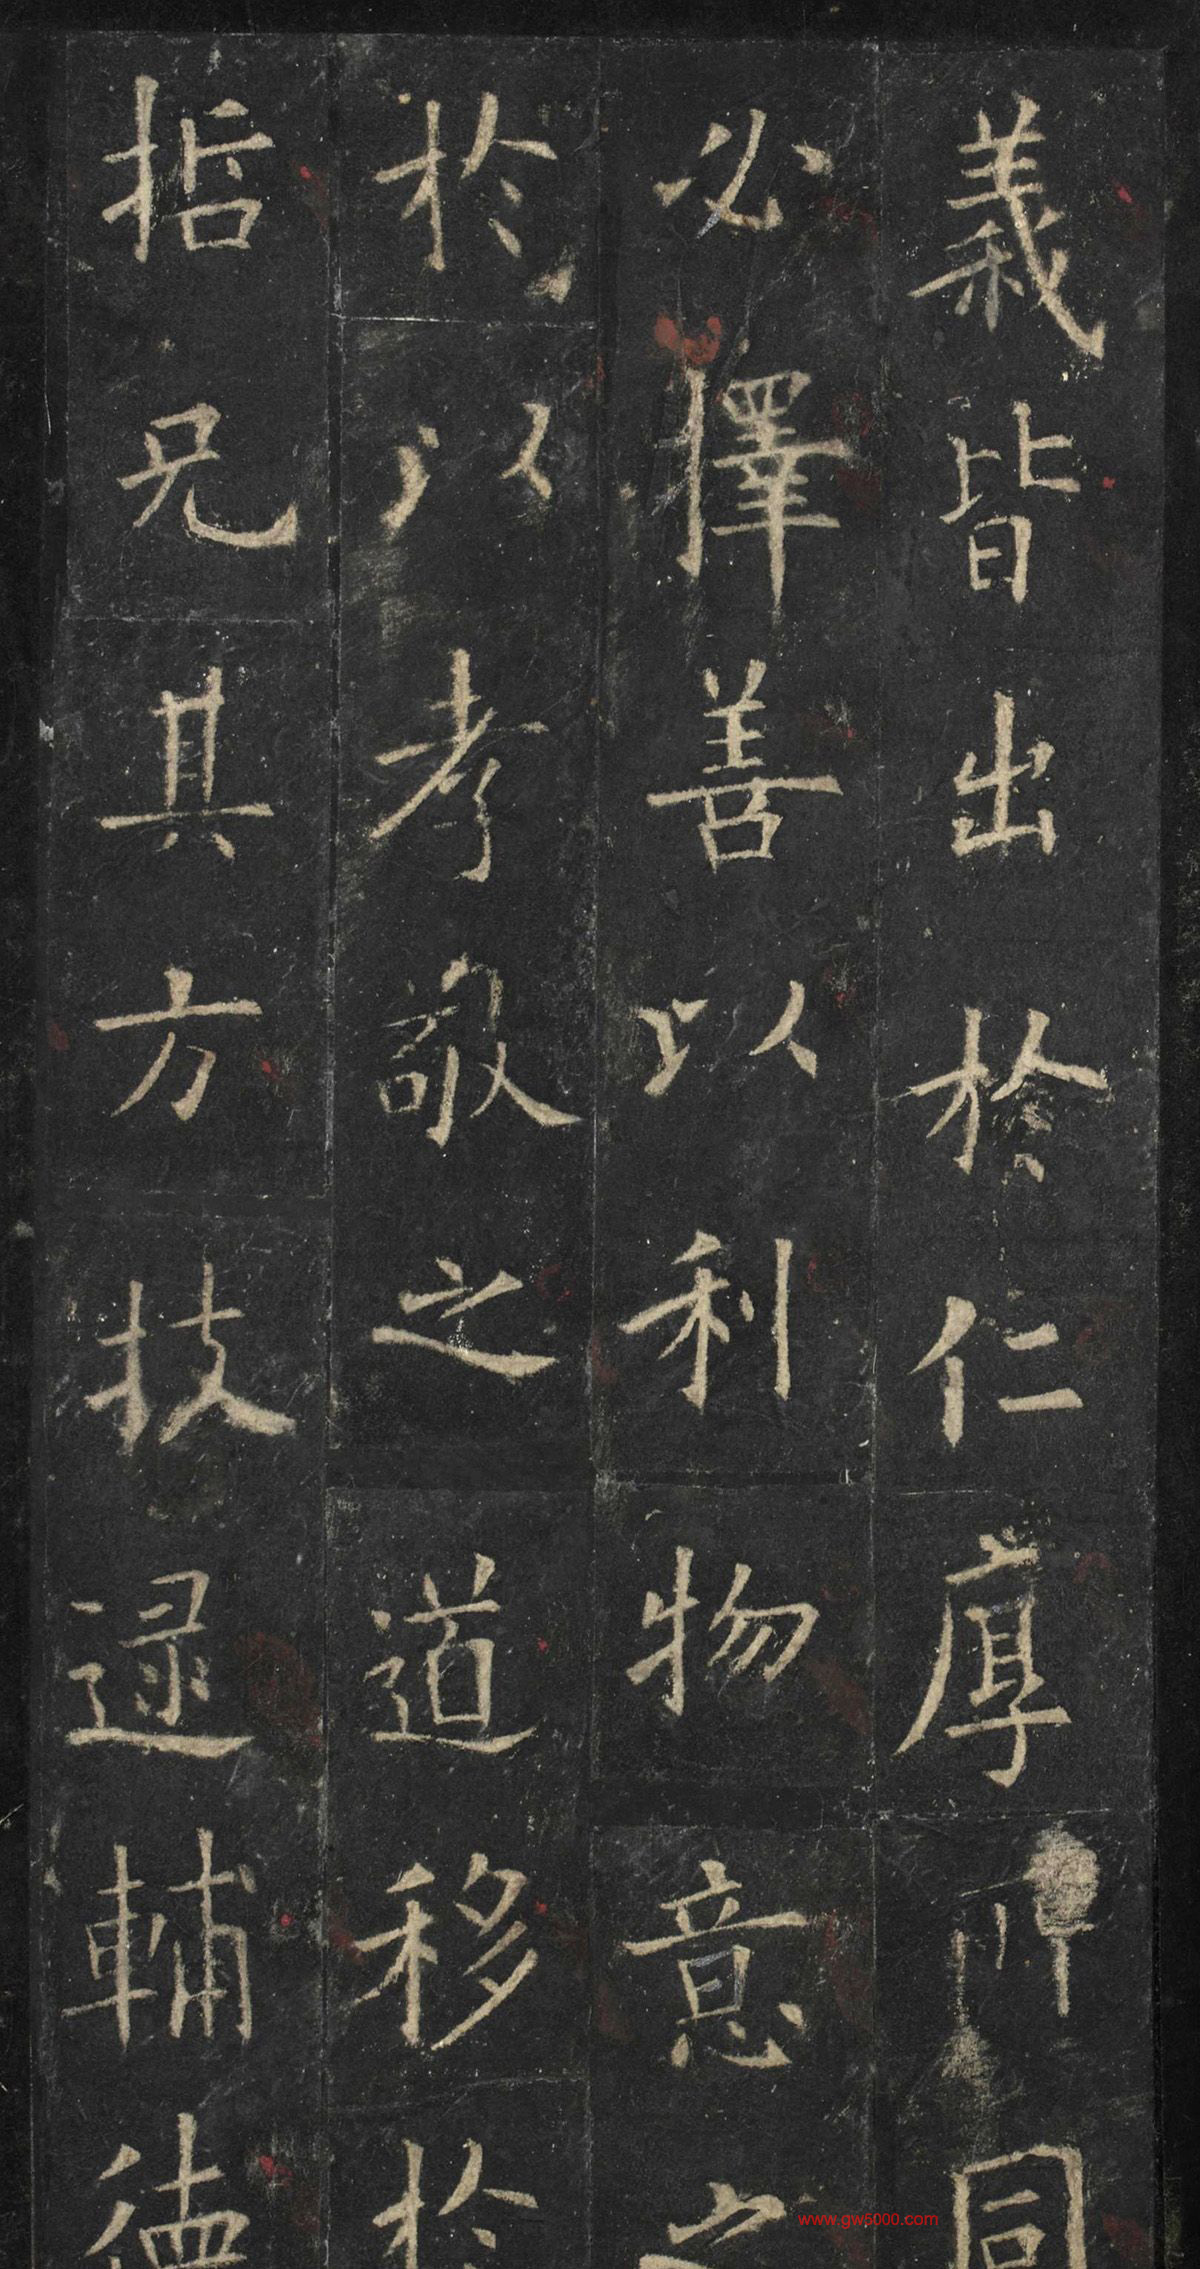 義皆出於仁厚同
必擇善以利物意
於以孝敬之道移於
哲兄其方技逯輔德
www.gw5000.com